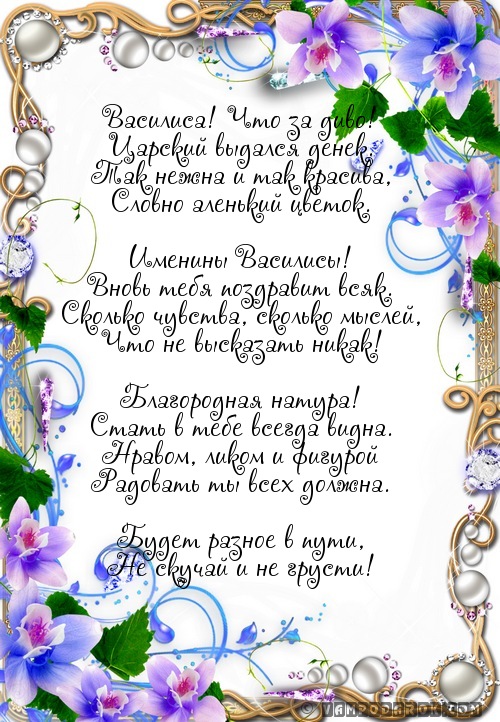 Василиса! Что за диво!
Царский выдался денек,
Так нежна и так красива,
Словно аленький цветок.
Именины Василисы!
Вновь тебя поздравит всяк,
Сколько чувства, сколько мыслей,
Что не высказать никак!
Благородная натура!
Стать в тебе всегда видна.
Нравом, ликом и фигурой
Радовать ты всех должна.
Будет разное в пути,
Не скучай и не грусти!
© VAMPODAROK.COM